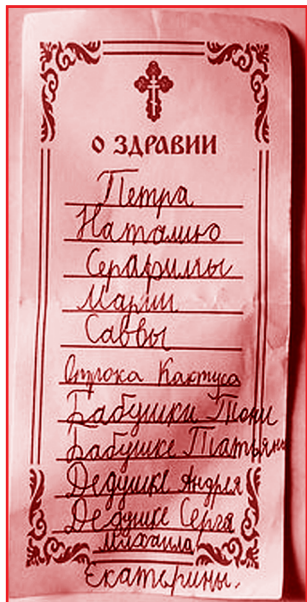 О ЗДРАВИИ
Петра
Наталию
Серафимы
Марии
Саввы
Отрока Кактуса
Бабушки Тони
Бабушке Татьяны
Дедушке Андрея
Дедушке Сергя
Михаила
Екатерины.